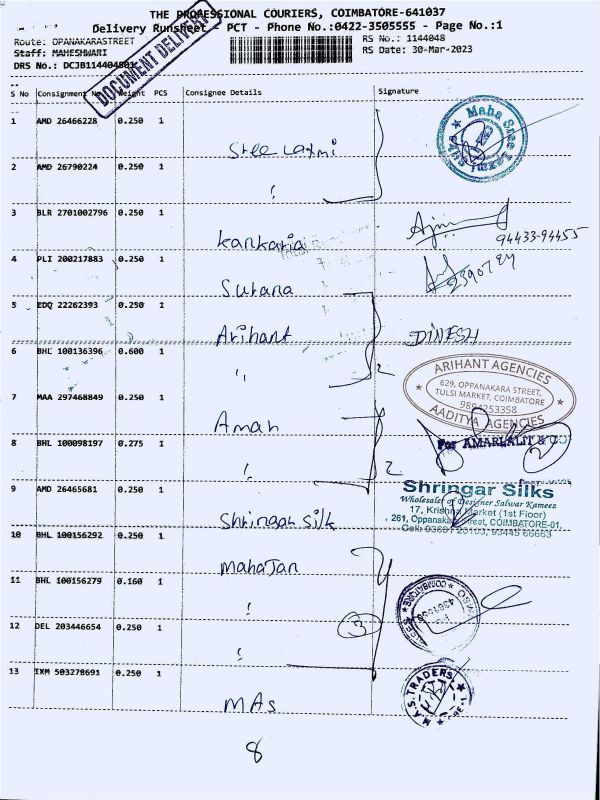 THE PROFESSIONAL COURIERS, COIMBATORE-641037
Delivery Runsheet - PCT - Phone No.:0422-3505555 - Page No.:1
Route: OPANAKARASTREET
RS No.: 1144048
Staff: MAHESHWARI
RS Date: 30-Mar-2023
DRS No.: DCJB1144048
DOCUMENT DELIVERY
S No Consignment No Weight PCS Consignee Details Signature
1 AMD 26466228 0.250 1 Sree Laxmi
Maha Sree Laxmi
2 AMD 26790224 0.250 1 "
3 BLR 2701002796 0.250 1 Kankaria
94433-94455
4 PLI 200217883 0.250 1 Surana
5 EDQ 22262393 0.250 1 Arihant DINESH
6 BHL 100136396 0.600 1 " 2
ARIHANT AGENCIES
629, OPPANAKARA STREET,
TULSI MARKET, COIMBATORE
9894353358
AADITYA AGENCIES
7 MAA 297468849 0.250 1 Aman
For AMARLALIT & CO
8 BHL 100098197 0.275 1 " 2
9 AMD 26465681 0.250 1 Shringar Silk
Shringar Silks
Wholesaler of Designer Salwar Kameez
17, Krishna Market (1st Floor)
261, Oppanakara Street, COIMBATORE-01.
10 BHL 100156292 0.250 1 Mahajan
11 BHL 100156279 0.160 1 "
COIMBATORE
12 DEL 203446654 0.250 1 " 3
13 IXM 503278691 0.250 1 MAs
M.A.S. TRADERS
8